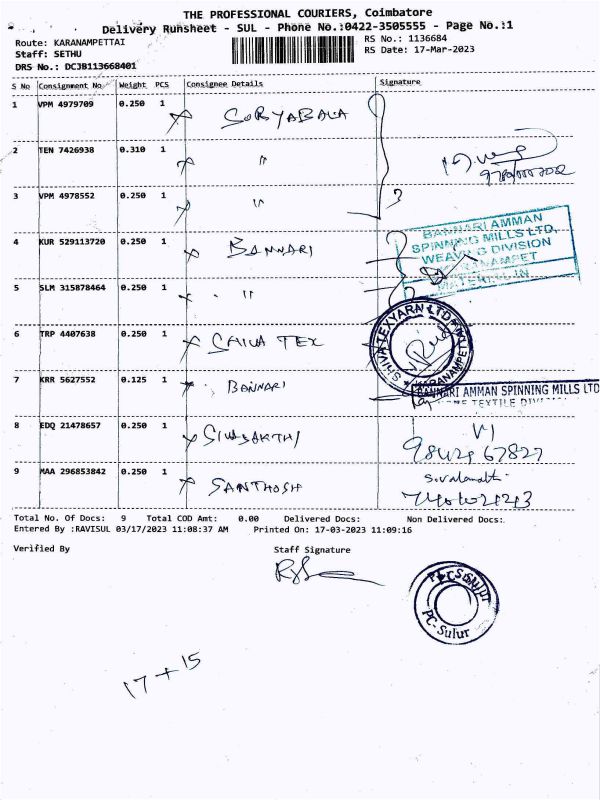 THE PROFESSIONAL COURIERS, Coimbatore
Delivery Runsheet - SUL - Phone No.:0422-3505555 - Page No.:1
Route: KARANAMPETTAI
RS No.: 1136684
Staff: SETHU
RS Date: 17-Mar-2023
DRS No.: DCJB113668401
S No Consignment No Weight PCS Consignee Details Signature
1 VPM 4979709 0.250 1 SORYABALA
2 TEN 7426938 0.310 1 "
3 VPM 4978552 0.250 1 "
4 KUR 529113720 0.250 1 BANNARI
BANNARI AMMAN
SPINNING MILLS LTD,
WEAVING DIVISION
KARANAMPET
MATERIAL IN
5 SLM 315878464 0.250 1 "
6 TRP 4407638 0.250 1 SHIVA TEX
SHIVA TEXYARN LTD
KARANAMPETTAI
7 KRR 5627552 0.125 1 BANNARI
BANNARI AMMAN SPINNING MILLS LTD
HOME TEXTILE DIVISION
8 EDQ 21478657 0.250 1 SIVASAKTHI
9842967827
9 MAA 296853842 0.250 1 SANTHOSH
Total No. Of Docs: 9 Total COD Amt: 0.00 Delivered Docs: Non Delivered Docs:
Entered By :RAVISUL 03/17/2023 11:08:37 AM Printed On: 17-03-2023 11:09:16
Verified By Staff Signature
PC-Sulur
17+15